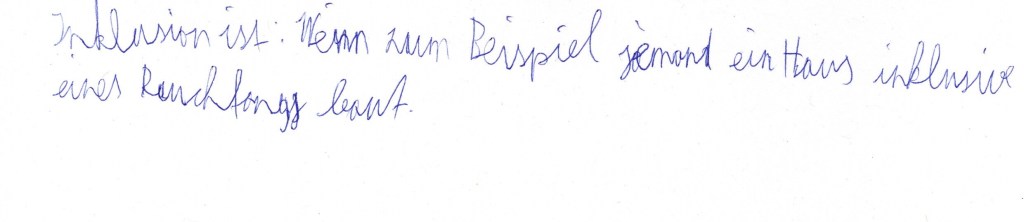 Inklusion ist: Wenn zum Beispiel jemand ein Haus inklusive
eines Rauchfangs baut.